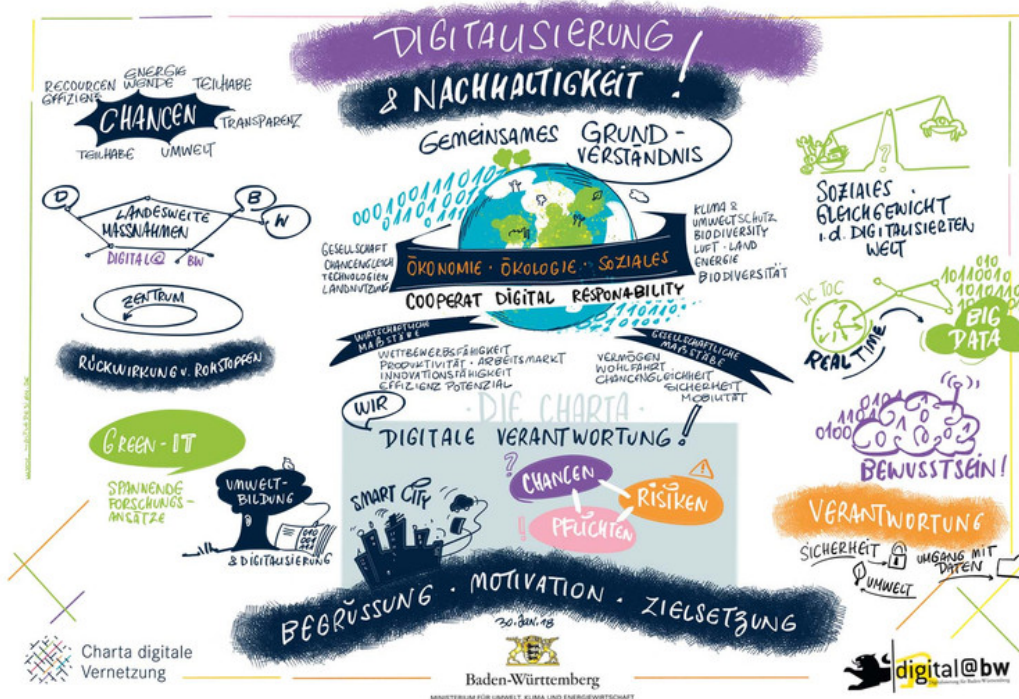 DIGITALISIERUNG
& NACHHALTIGKEIT!
GEMEINSAMES GRUND-
VERSTÄNDNIS
RECOURCEN
EFFIZIENZ
ENERGIE
WENDE
TEILHABE
CHANCEN
TRANSPARENZ
TEILHABE
UMWELT
D
B
W
LANDESWEITE
MASSNAHMEN
DIGITAL@ BW
ZENTRUM
RÜCKWIRKUNG V. ROHSTOFFEN
GREEN-IT
SPANNENDE
FORSCHUNGS-
ANSÄTZE
UMWELT-
BILDUNG
010
001
& DIGITALISIERUNG
GESELLSCHAFT
CHANCENGLEICH
TECHNOLOGIEN
LANDNUTZUNG
ÖKONOMIE · ÖKOLOGIE · SOZIALES
COOPERAT DIGITAL RESPONABILITY
KLIMA &
UMWELTSCHUTZ
BIODIVERSITY
LUFT · LAND
ENERGIE
BIODIVERSITÄT
WIRTSCHAFTLICHE
MAẞSTÄBE
WETTBEWERBSFÄHIGKEIT
PRODUKTIVITÄT · ARBEITSMARKT
INNOVATIONSFÄHIGKEIT
EFFIZIENZ POTENZIAL
GESELLSCHAFTLICHE
MAẞSTÄBE
VERMÖGEN
WOHLFAHRT
CHANCENGLEICHHEIT
SICHERHEIT
MOBILITÄT
· DIE CHARTA ·
WIR
DIGITALE VERANTWORTUNG!
SMART CITY
?
CHANCEN
!
RISIKEN
!
PFLICHTEN
?
SOZIALES
GLEICHGEWICHT
i.d. DIGITALISIERTEN
WELT
TIC TOC
REAL TIME
BIG
DATA
BEWUSSTSEIN!
VERANTWORTUNG
SICHERHEIT
UMGANG MIT
DATEN
UMWELT
BEGRÜSSUNG · MOTIVATION · ZIELSETZUNG
30. Jan. 18
Charta digitale
Vernetzung
Baden-Württemberg
MINISTERIUM FÜR UMWELT, KLIMA UND ENERGIEWIRTSCHAFT
digital@bw